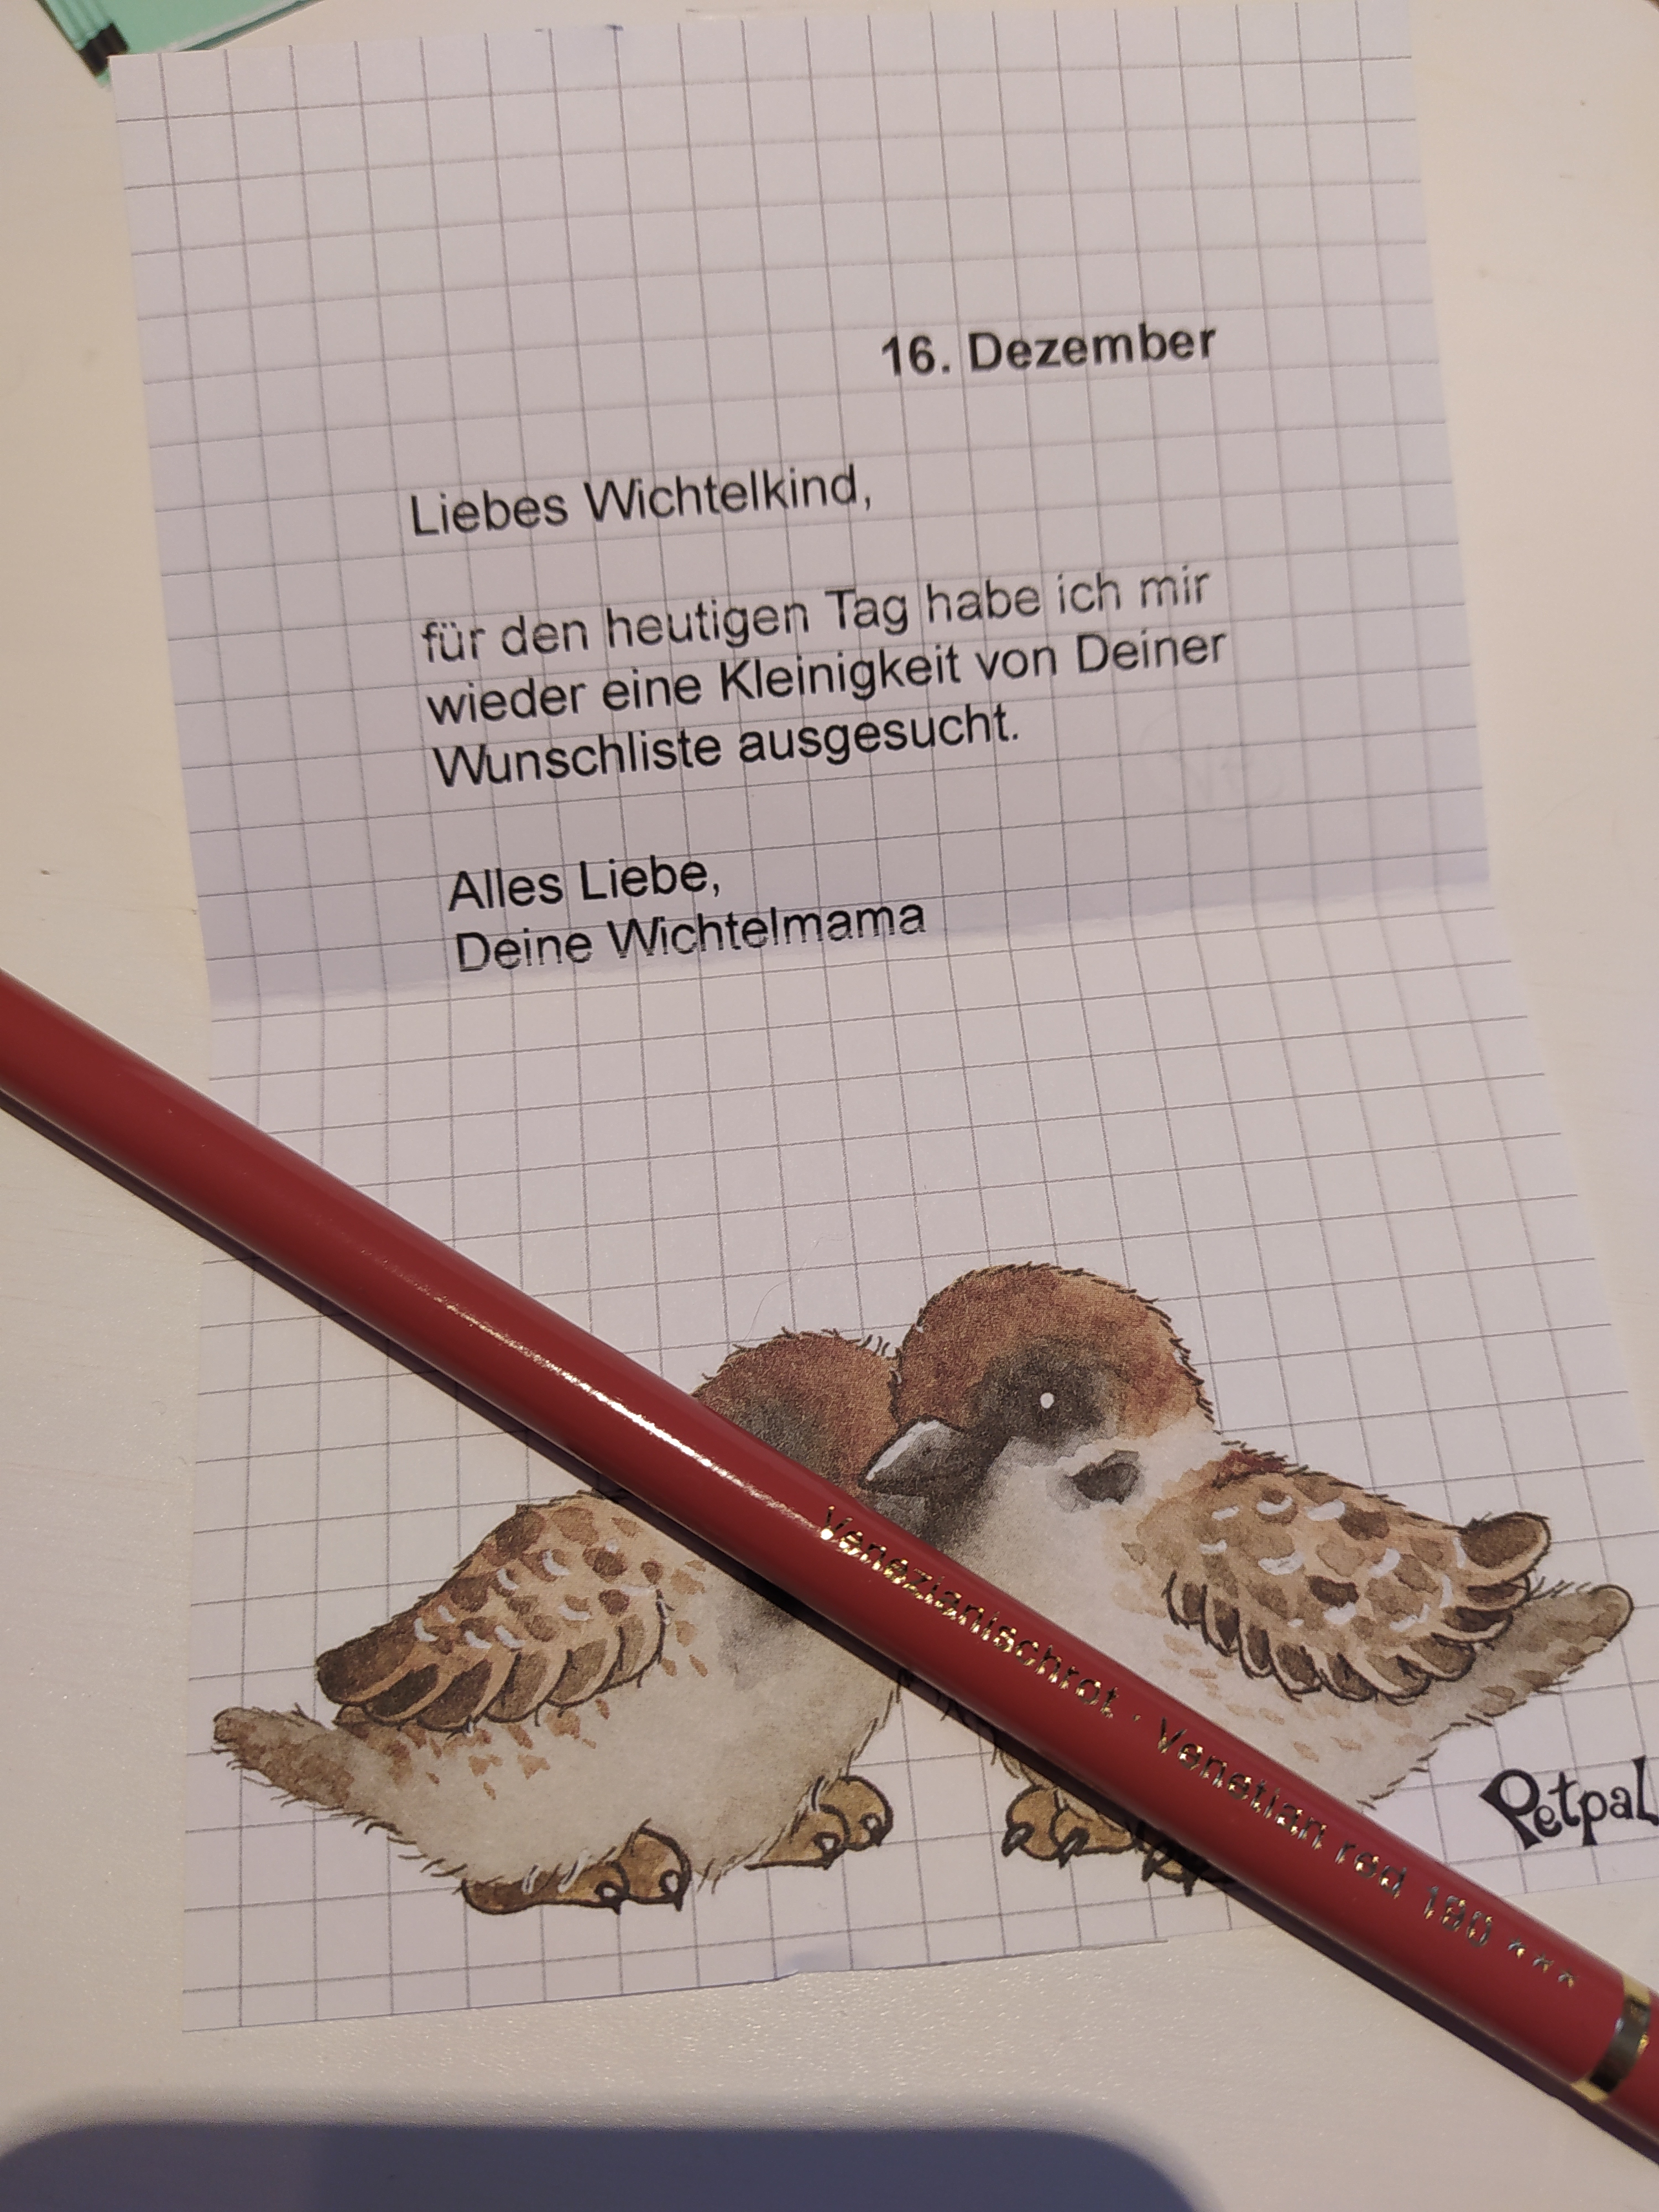 16. Dezember
Liebes Wichtelkind,
für den heutigen Tag habe ich mir
wieder eine Kleinigkeit von Deiner
Wunschliste ausgesucht.
Alles Liebe,
Deine Wichtelmama
Venezianischrot · Venetian red 190 ***
Petpal